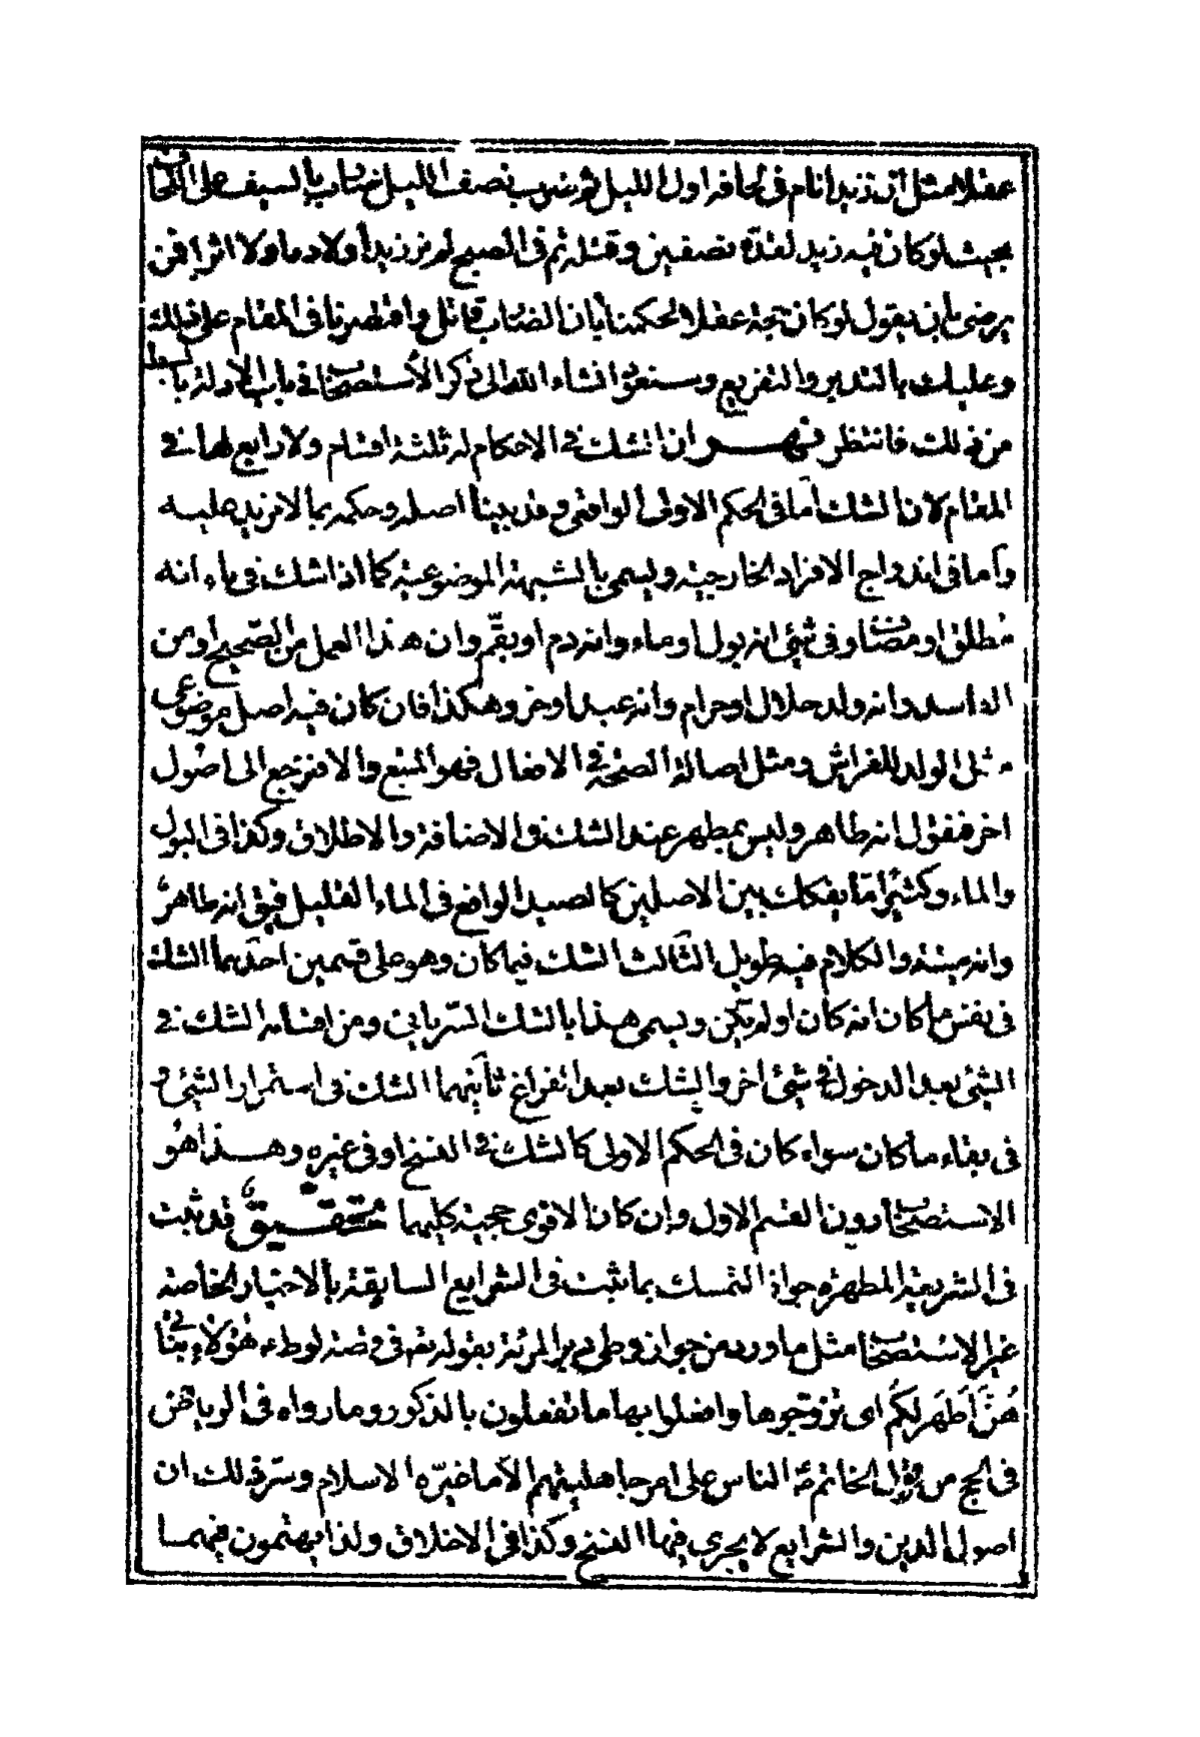 عقلا مثل ان زيدا نام فى لحافه اول الليل ثم ضرب نصف الليل ضارب بالسيف على اللحاف
بحيث لو كان فيه زيد لقدّه نصفين و قتله ثم فى الصبح لم نر زيدا ولا دما ولا اثرا فمن
يرضى بان يقول لو كان حجة عقلا لحكمنا بان الضارب قاتل واقتصرنا فى المقام على ذلك
وعليك بالتدبر والتفريع وسنعود انشاء الله الى ذكر الاستصحاب فى باب الادلة بابسط
من ذلك فانتظر ان الشك فى الاحكام له ثلثة اقسام ولا رابع لها فى
المقام لان الشك اما فى الحكم الاولى الواقعى وقد بينا اصله وحكمه بما لا نزيد عليه
واما فى اندراج الافراد الخارجية ويسمى بالشبهة الموضوعية كما اذا شك فى ماء انه
مطلق او مضاف او فى شئ انه بول او ماء وانه دم او بقّم وان هذا العمل من الصحيح او من
الفاسد وانه ولد حلال او حرام وانه عبد او حر وهكذا فان كان فيه اصل موضوعى
مثل الولد للفراش ومثل اصالة الصحة فى الافعال فهو المتبع والا فنرجع الى اصول
اخر فنقول انه طاهر وليس بمطهر عند الشك فى الاضافة والاطلاق وكذا فى البول
والماء وكثيرا ما يفكك بين الاصلين كالصيد الواقع فى الماء القليل فيق انه طاهر
وانه ميتة والكلام فيه طويل الثالث الشك فيما كان وهو على قسمين احدهما الشك
فى نفس ما كان انه كان او لم يكن ويسمى هذا بالشك السريانى ومن اقسامه الشك فى
الشئ بعد الدخول فى شئ اخر والشك بعد الفراغ ثانيهما الشك فى استمرار الشئ و
فى بقاء ما كان سواء كان فى الحكم الاولى كالشك فى النسخ او فى غيره وهذا هو
الاستصحاب دون القسم الاول وان كان الاقوى حجية كليهما تحقيق قد ثبت
فى الشريعة المطهرة جواز التمسك بما ثبت فى الشرايع السابقة بالاخبار الخاصة
غير الاستصحاب مثل ما ورد من جواز وطى دبر المرئة بقوله تع فى قصة لوط هؤلاء بناتى
هُنَّ اَطْهَر لَكُم اى تزوجوها وافعلوا بها ما تفعلون بالذكور وما رواه فى الرياض
فى الحج من قول الخاتم ص الناس على امر جاهليتهم الا ما غيّره الاسلام وسرّ ذلك ان
اصول الدين والشرايع لا يجرى فيها النسخ وكذا فى الاخلاق ولذا يهتمون فيهما